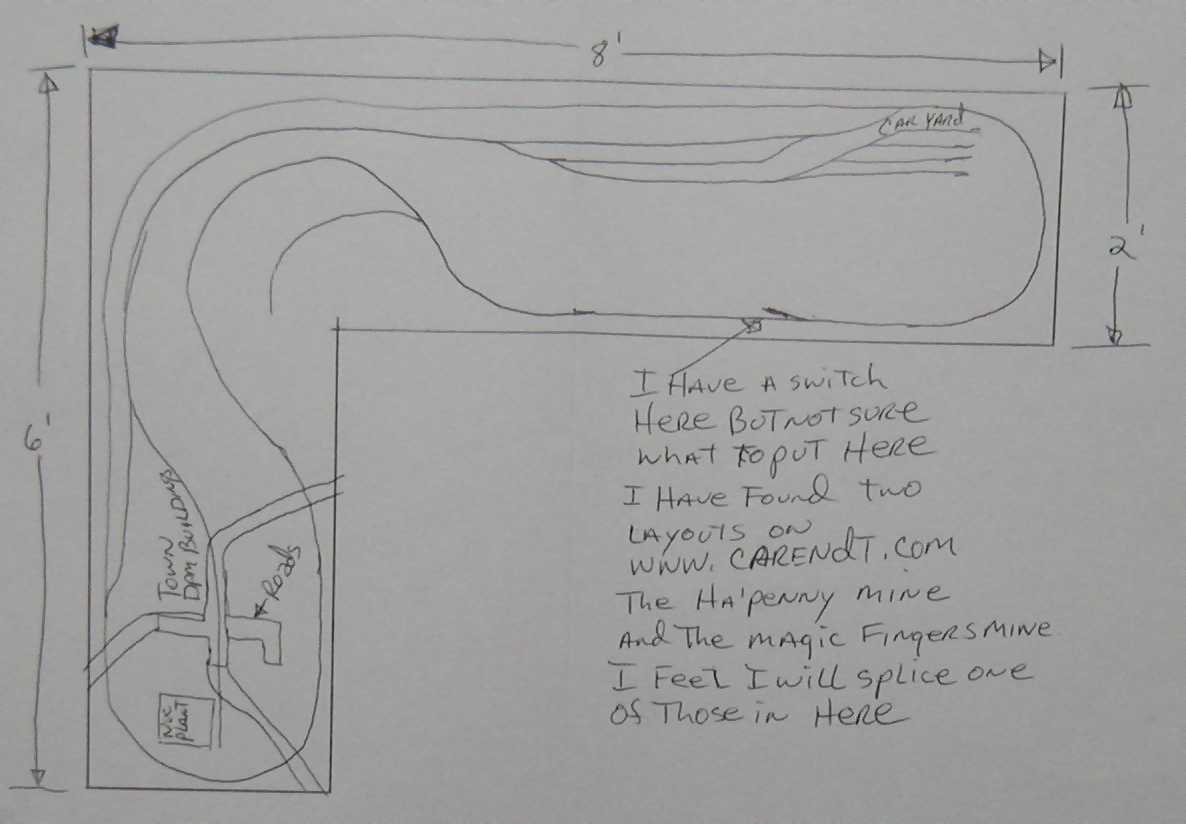 8'
CAR YARD
2'
6'
I HAVE A SWITCH
HERE BUT NOT SURE
WHAT TO PUT HERE
I HAVE FOUND TWO
LAYOUTS ON
WWW. CARENDT.COM
THE HA'PENNY MINE
AND THE MAGIC FINGERS MINE
I FEEL I WILL SPLICE ONE
OF THOSE IN HERE
TOWN
DPM BUILDINGS
ROADS
PLANT